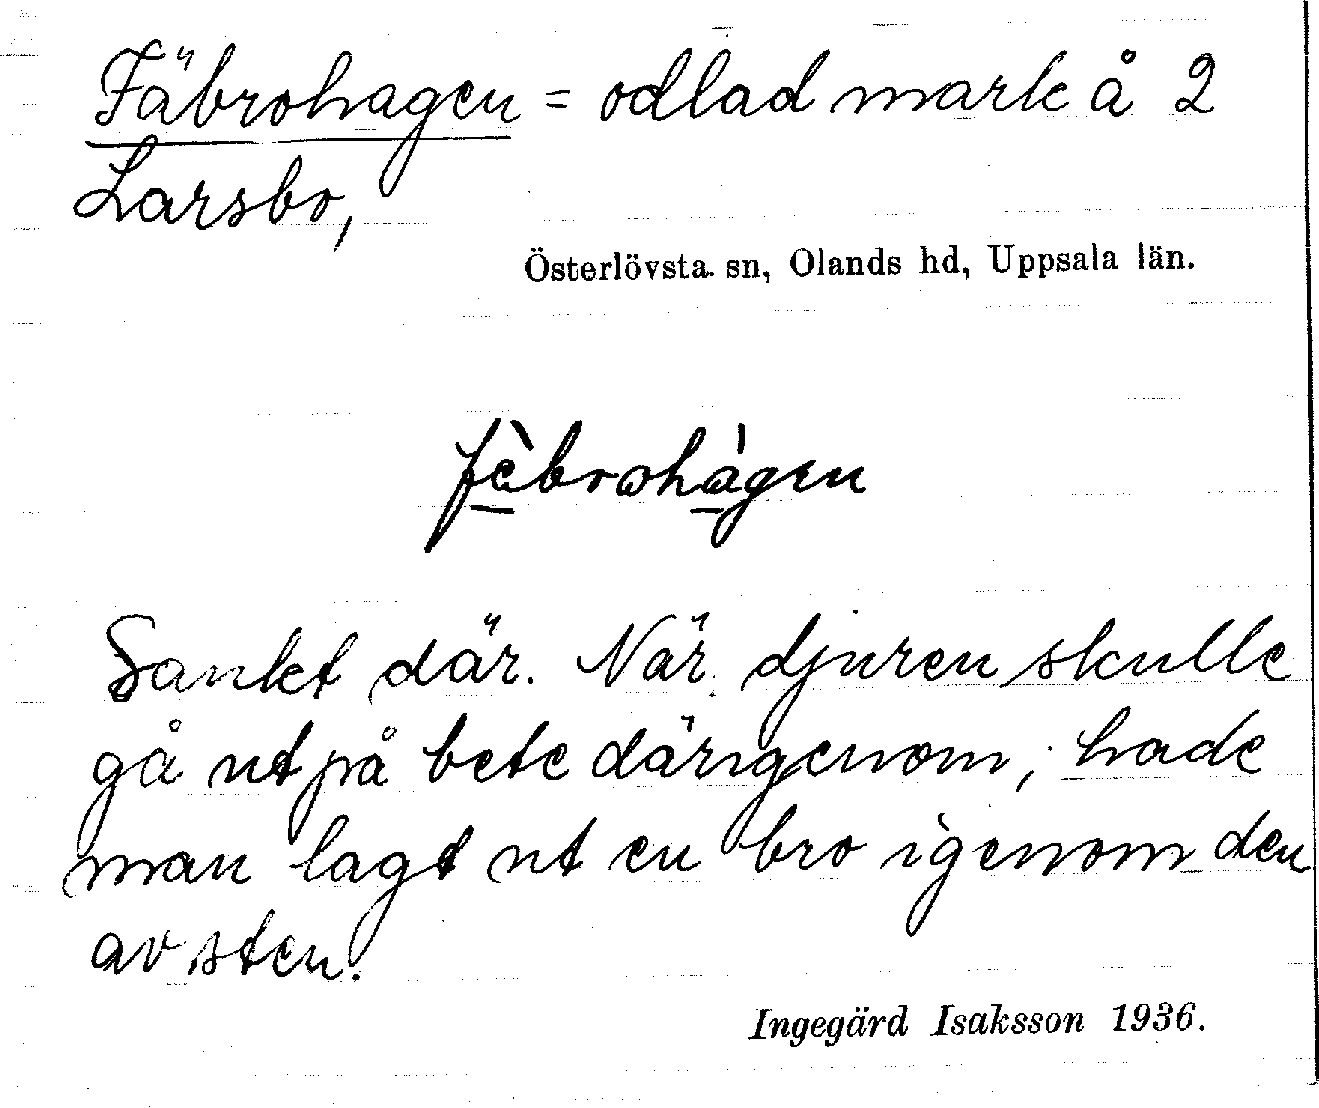 Fäbrohagen = odlad mark å 2
Larsbo,
Österlövsta sn, Olands hd, Uppsala län.
fèbrohágen
Sankt där. När djuren skulle
gå ut på bete därigenom, hade
man lagt ut en bro igenom den
av sten.
Ingegärd Isaksson 1936.